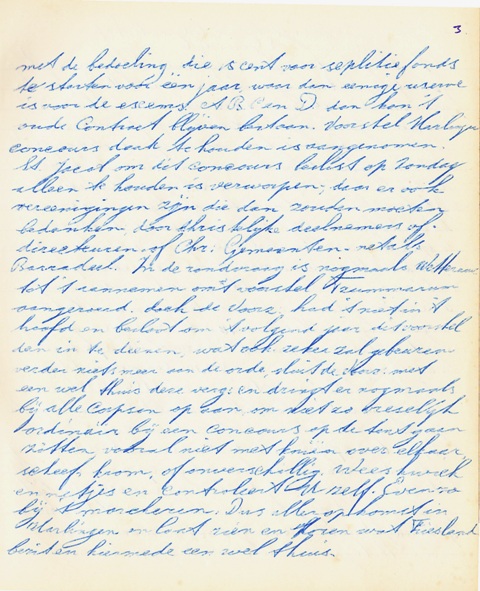 3
met de bedoeling, die is cent voor fonds
te storten voor één jaar, waar dan eenige
is voor de A B C en D dan kan 't
oude Contract blijven bestaan. Voorstel Harlingen
concours deelt te houden is aangenomen.
Et Joost om dit concours beslist op Zondag
alleen te houden is verworpen, daar er ook
vereenigingen zijn die dan zouden moeten
bedanken, door christelijke deelnemers of
directeuren of Chr. Gemeenten. net als
Barradeel. In de rondvraag is nogmaals
tot 't aannemen om 't voorstel Trummarum
aangeroerd, doch de Voorz. had 't niet in 't
hoofd en besloot om 't volgend jaar dit voorstel
den in te dienen, wat ook zeker zal gebeuren
verder niets meer aan de orde, sluit de voorz: met
een wel thuis deze verg: en dringt er nogmaals
bij alle corpsen op aan, om niet zo vreselijk
ordinair bij een concours op de tent gaan
zitten, vooral niet met knieën over elkaar,
scheef, krom, of onverschillig. Wees kwiek
en netjes en controleert U zelf. Even zo
bij 't marcheren. Dus allen op komst in
Harlingen en laat zien en horen wat Friesland
besten hiermede een wel thuis.